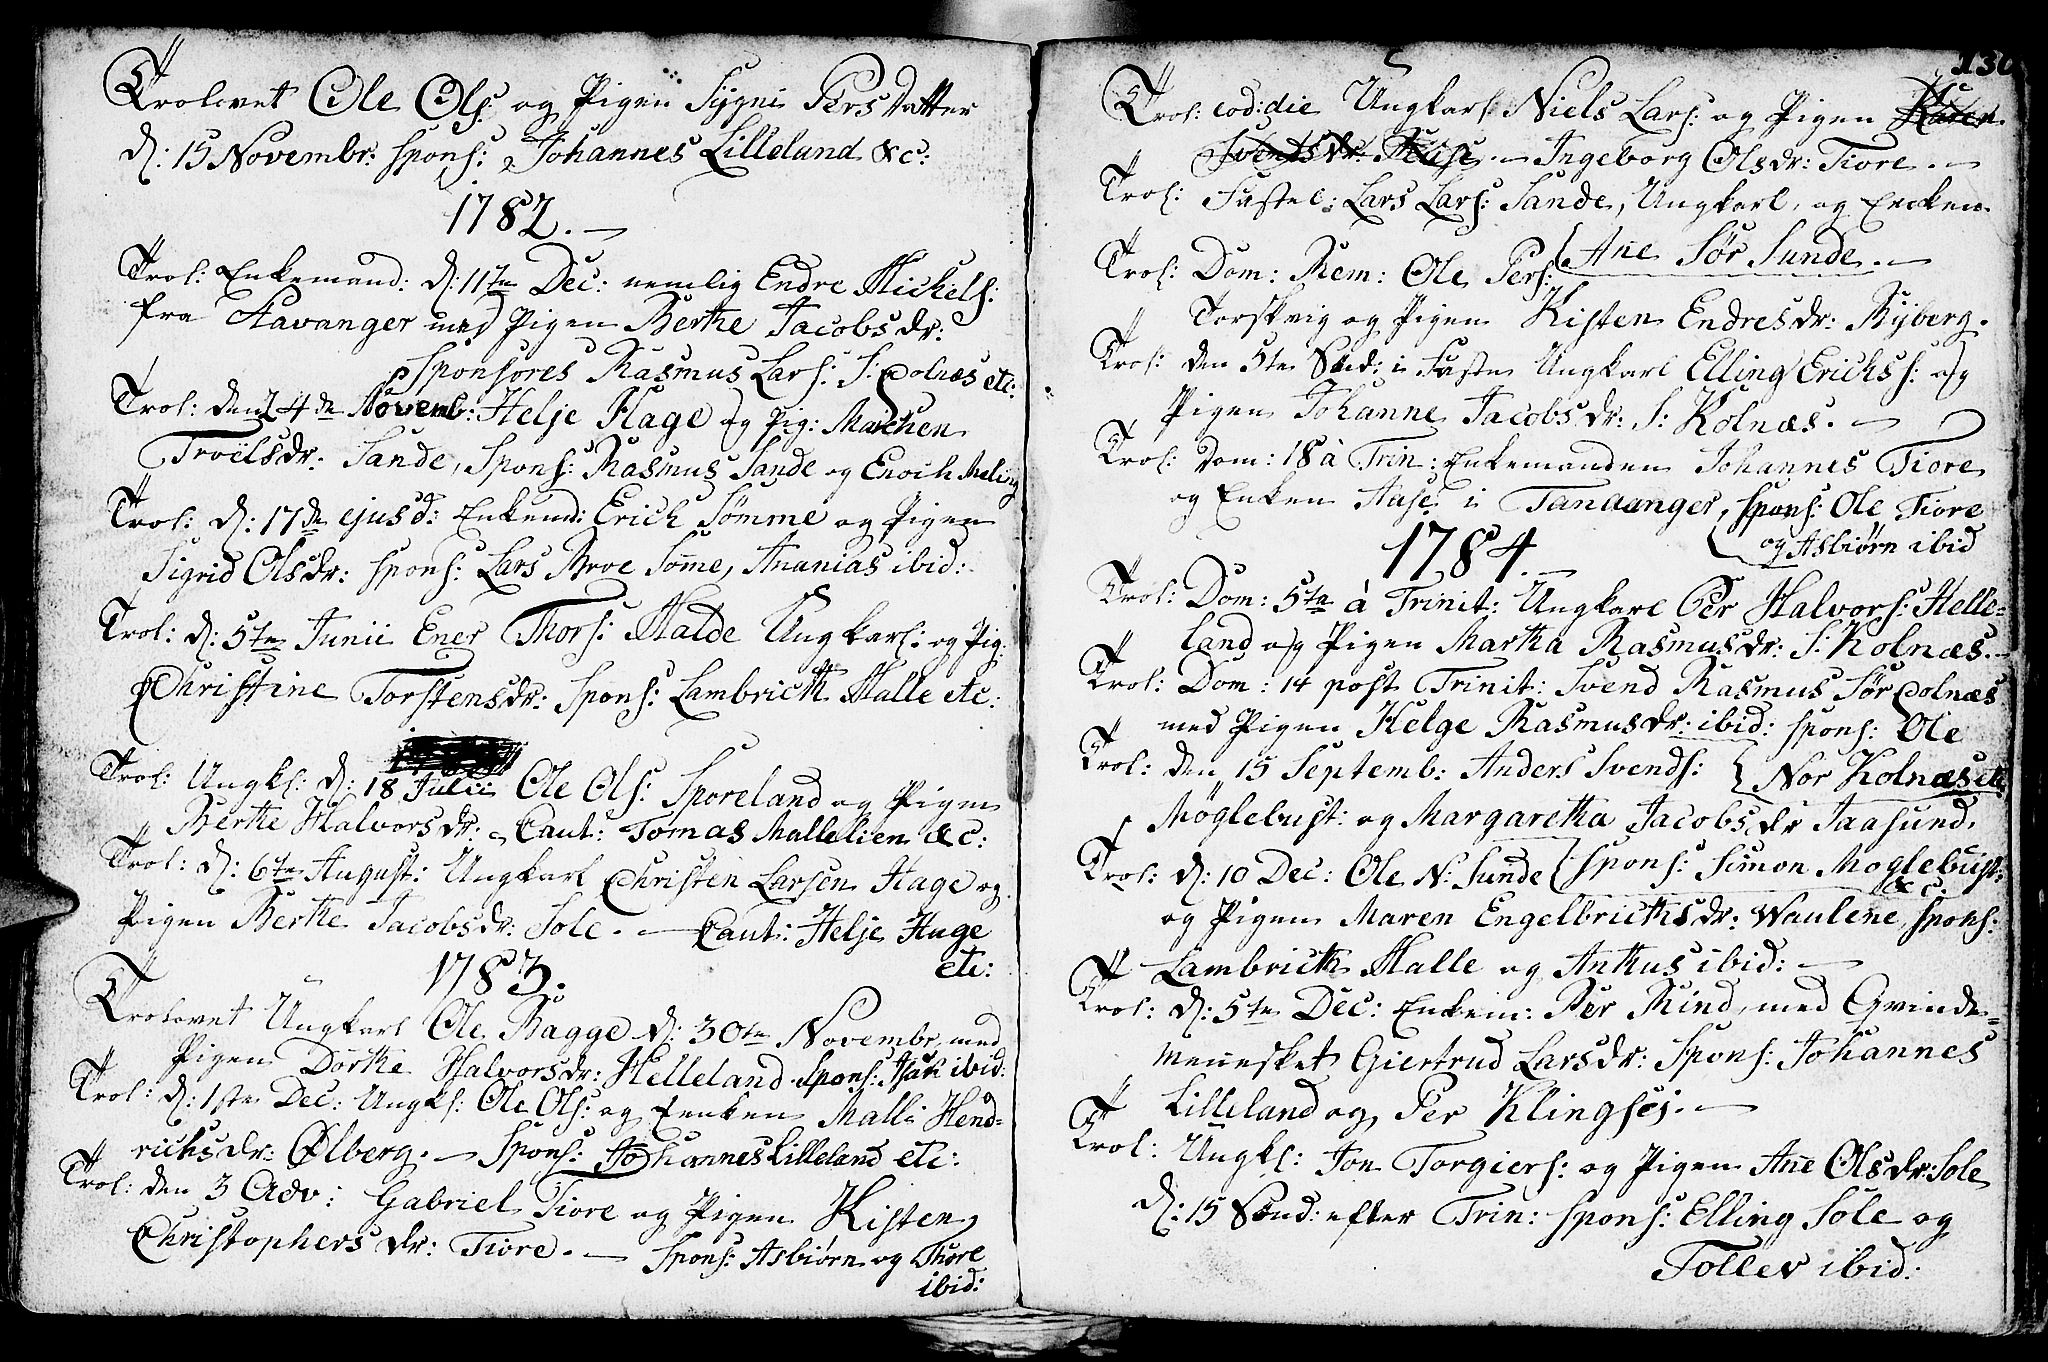 Trolovet Ole Ols: og Pigen Sygni Pers Datter
d: 15 Novembr: spons: Johannes Lilleland &c:
1782.
Trol: Enkemand: d: 11te Dec: nemlig Endre Mickels:
fra Stavanger med Pigen Berthe Jacobsdr:
Sponsores Rasmus Lars: S: Colnæs etc:
Trol: den 24de Novemb: Helje Hage og Pig: Marchen
Troëlsdr: Sande, Spons: Rasmus Sande og Enoch Meling
Trol: d: 17de ejusd: Enkemd: Erich Sömme og Pigen
Sigrid Olsdr: spons: Lars Broe Somme, Ananias ibid:
Trol: d: 5te Junii Ener Thors: Halde Ungkarl: og Pig:
Christine Torstensdr: Spons: Lambricth Halle etc:
Trol: Ungkl: d: 18 Julii Ole Ols: Sporeland og Pigen
Berthe Halvorsdr: Caut: Tomas Mallelien &c:
Trol: d: 6te August: Ungkarl Christen Larsen Hage og
Pigen Berthe Jacobsdr: Sole. Caut: Helje Huge
etc:
1783.
Trolovet Ungkarl Ole Bagge d: 30te Novembr. med
Pigen Dorthe Halvorsdr: Helleland. Spons: Isak ibid:
Trol: d: 1ste Dec: Ungkl: Ole Ols: og Enken Malli Hend-
richsdr: Ølberg. Spons: Johannes Lilleland etc:
Trol: den 3 Adv: Gabriel Tiore og Pigen Kisten
Christophersdr: Tiore. Spons: Asbiørn og Thore
ibid:
130
Trol: eod: die Ungkarl Niels Lars: og Pigen Karen
Svendsdr: Ingeborg Olsdr: Tiore.
Trol: Fastel: Lars Lars: Sande, Ungkarl, og Enken
Ane Sør Sunde.
Trol: Dom: Rem: Ole Pers:
Torskvig og Pigen Kisten Endresdr: Ryberg.
Trol: den 5te Sønd: i Faste Ungkarl Elling Erichs: og
Pigen Johanne Jacobsdr: S: Kolnæs.
Trol: Dom: 18 à Trin: Enkemanden Johannes Tiore
og Enken Aase i Tanaanger, spons: Ole Tiore
og Asbiørn ibid
1784.
Trol: Dom: 5ta à Trinit: Ungkarl Per Halvors: Helle-
land og Pigen Martha Rasmusdr: S: Kolnæs.
Trol: Dom: 14 post Trinit: Svend Rasmus Sør Colnæs
med Pigen Helge Rasmusdr: ibid: spons: Ole
Nor Kolnæs etc
Trol: den 15 Septemb: Anders Svends:
Möglebust: og Margaretha Jacobsdr Jaasund,
spons: Simon Moglebust:
&c.
Trol: d: 10 Dec: Ole N: Sunde
og Pigen Maren Engelbricthsdr: Waulene, spons:
Lambricth Halle og Anthus ibid:
Trol: d: 5te Dec: Enkem: Per Rind, med Qvinde-
mennesket Giertrud Larsdr: Spons: Johannes
Lilleland og Per Klingsej.
Trol: Ungkl: Jon Torgiers: og Pigen Ane Olsdr: Sole
d: 15 Sønd: efter Trin: spons: Elling Sole og
Tollev ibid: